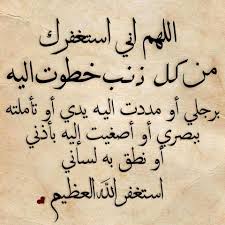 اللهم اني استغفرك
من كل ذنب خطوت اليه
برجلي أو مددت اليه يدي أو تأملته
ببصري أو أصغيت إليه بأذني
أو نطق به لساني
استغفر الله العظيم